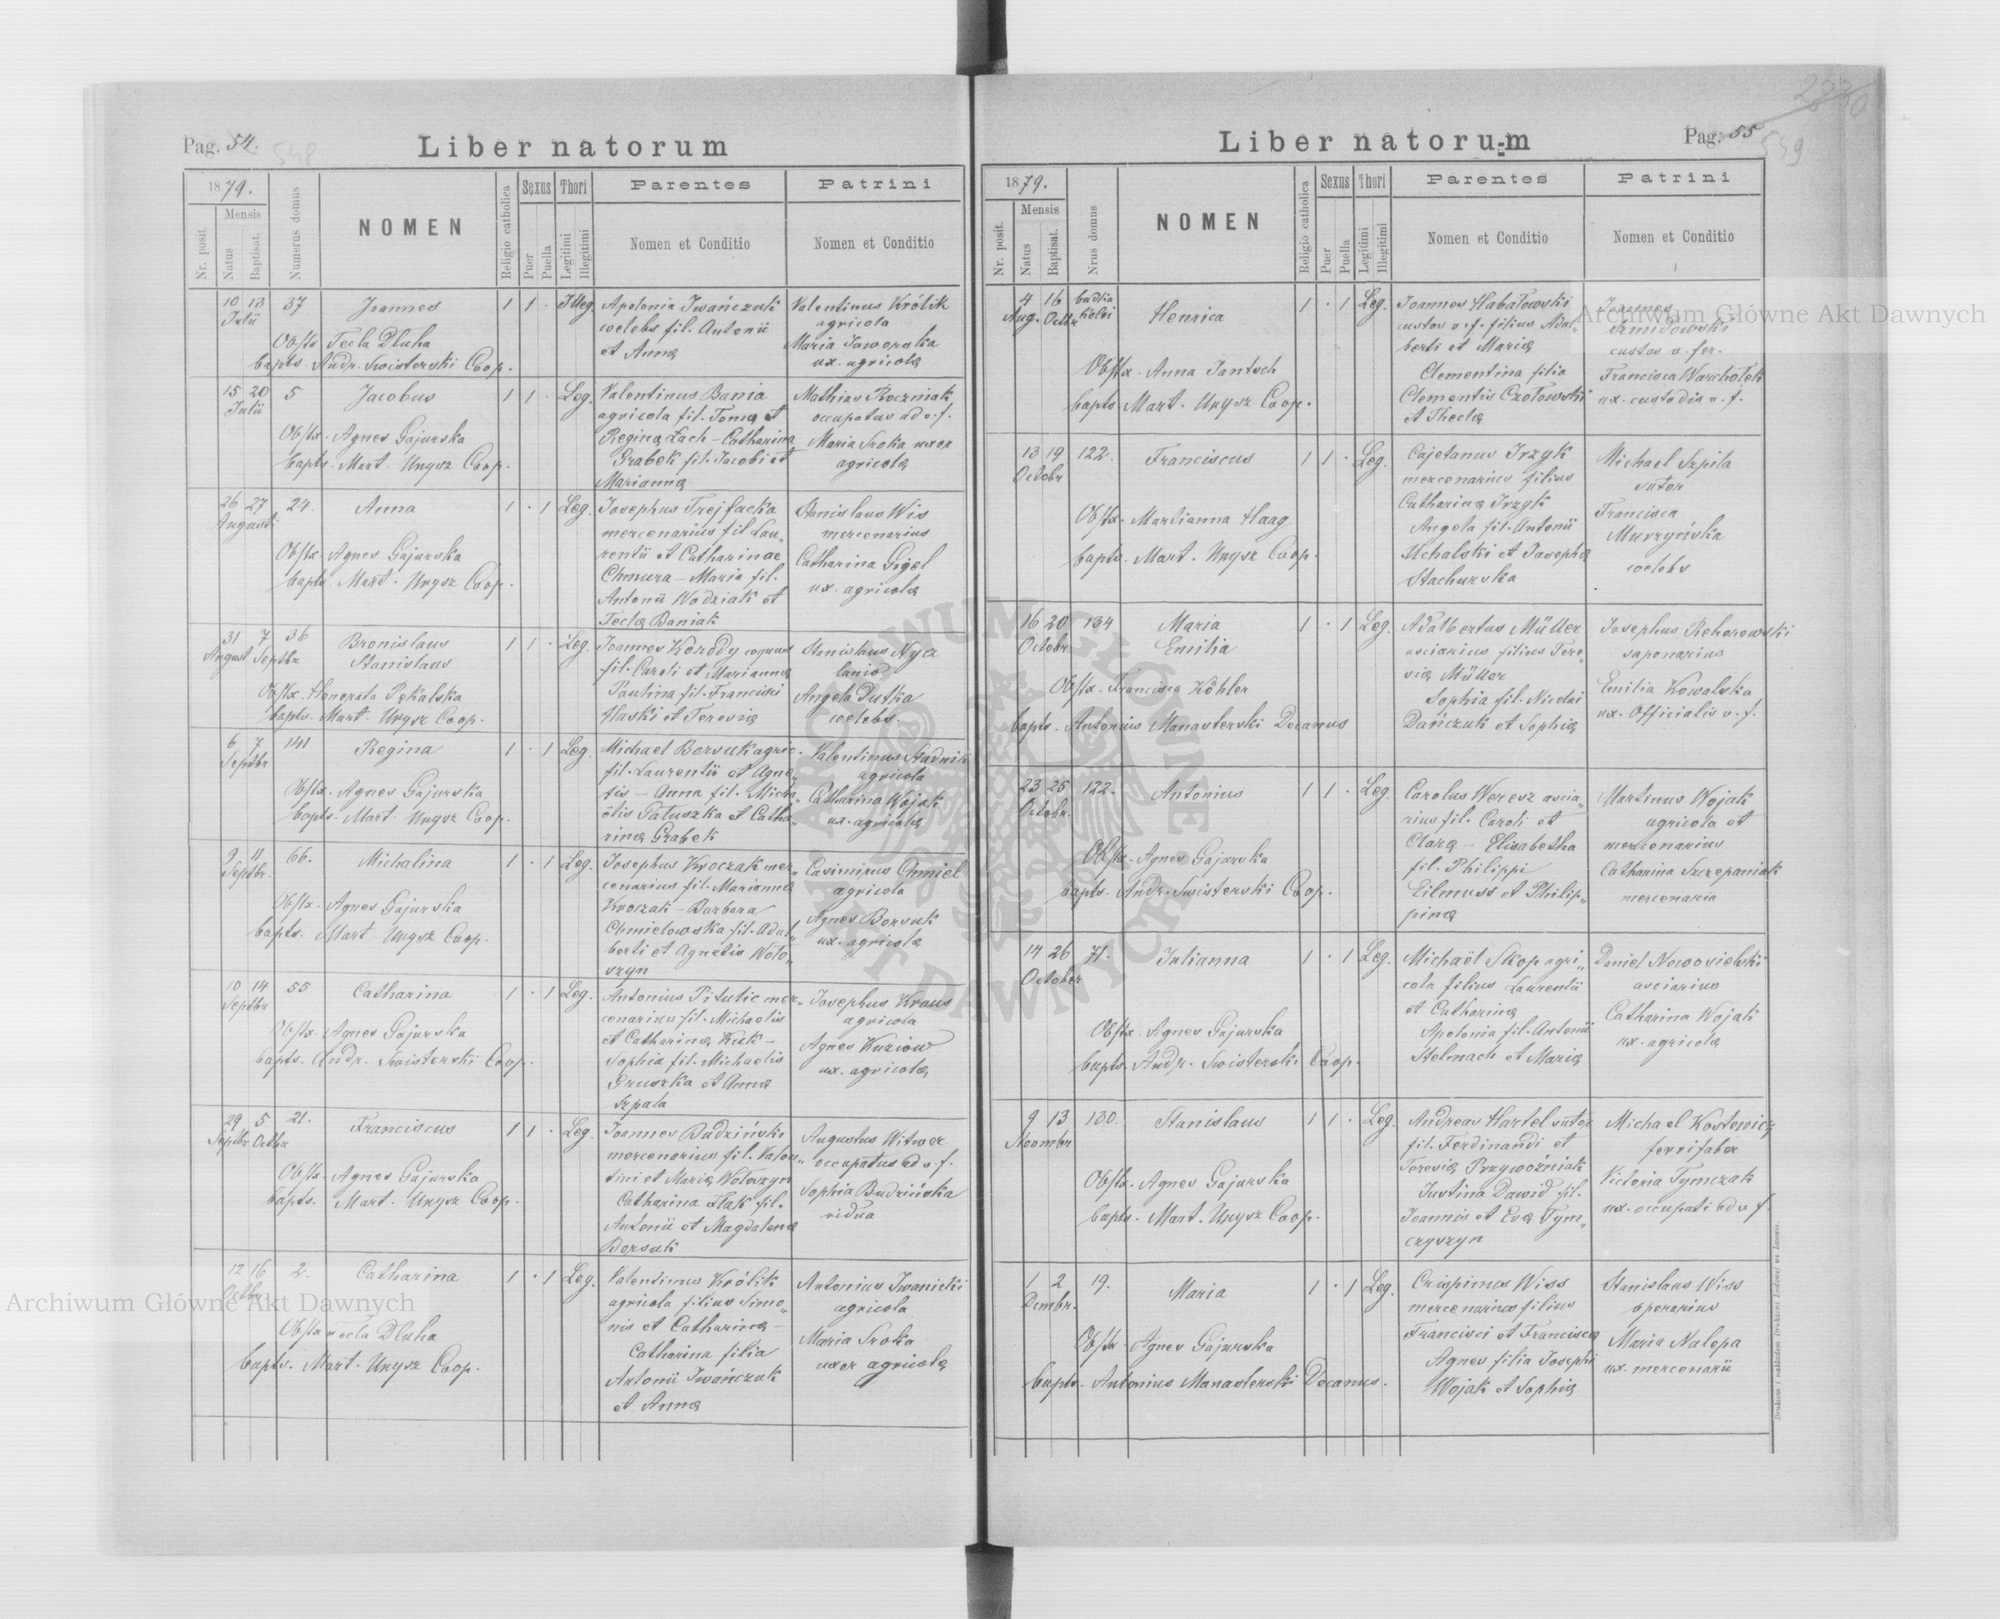 Pag. 54.
Liber natorum
1879.
Nr. posit.
Mensis
Natus
Baptisat.
Numerus domus
NOMEN
Religio catholica
Sexus
Puer
Puella
Thori
Legitimi
Illegitimi
Parentes
Nomen et Conditio
Patrini
Nomen et Conditio
10 13 37 Joannes 1 1 · Illeg.
Julii
Obstx Tecla Dluha
bapts. Andr. Swisterski Coop.
Apolonia Iwańczuk
coelebs fil. Antonii
et Annæ
Valentinus Królik
agricola
Maria Jaworska
ux. agricolæ
15 20 5 Jacobus 1 1 · Leg.
Julii
Obstx. Agnes Gajurska
bapts. Mart. Unysz Coop.
Valentinus Bania
agricola fil. Tomæ et
Reginæ Lach – Catharina
Grabek fil. Jacobi et
Mariannæ
Mathias Roczniak
occupatus ad v. f.
Maria Sroka uxor
agricolæ
26 27 24. Anna 1 · 1 Leg.
Augusti
Obstx Agnes Gajurska
bapts Mart. Unysz Coop.
Josephus Trejfacka
mercenarius fil Lau-
rentii et Catharinae
Chmura – Maria fil.
Antonii Wodziak et
Teclæ Baniak
Stanislaus Wis
mercenarius
Catharina Gigel
ux. agricolæ
31 7 36 Bronislaus 1 1 · Leg.
August Septbr Stanislaus
Obstx. Honorata Pękalska
bapts. Mart. Unysz Coop.
Joannes Korody coquus
fil. Caroli et Mariannæ
Paulina fil. Francisci
Ilaski et Teresiæ
Stanislaus Nycz
lanio
Angela Dutka
coelebs.
6 7 141 Regina 1 · 1 Leg.
Septbr
Obstx. Agnes Gajurska
bapts. Mart. Unysz Coop.
Michael Borsuk agric.
fil. Laurentii et Agne-
tis – Anna fil. Micha-
ëlis Patuszka et Catha-
rinæ Grabek
Valentinus Studnik
agricola
Catharina Wojak
ux. agricolæ
9 11 66. Michalina 1 · 1 Leg.
Septbr.
Obstx. Agnes Gajurska
bapts. Mart. Unysz Coop.
Josephus Kroczak mer-
cenarius fil. Mariannæ
Kroczak – Barbara
Chmielowska fil. Adal-
berti et Agnetis Woło-
szyn
Casimirus Chmiel
agricola
Agnes Borsuk
ux. agricolæ
10 14 55 Catharina 1 · 1 Leg.
Septbr
Obstx. Agnes Gajurska
bapts. Andr. Swisterski Coop.
Antonius Pitulic mer-
cenarius fil. Michaelis
et Catharinæ Kuk –
Sophia fil. Michaelis
Gruszka et Annæ
Szpala
Josephus Kraus
agricola
Agnes Kuziow
ux. agricolæ,
29 5 21. Franciscus 1 1 · Leg.
Septbr Octbr
Obstx. Agnes Gajurska
bapts. Mart. Unysz Coop.
Joannes Budziński
mercenarius fil. Valen-
tini et Mariæ Wołoszyn
Catharina Ilak fil.
Antonii et Magdalenæ
Borsuk
Augustus Witwer
occupatus ad v. f.
Sophia Budzińska
vidua
12 16 2. Catharina 1 · 1 Leg.
Octbr.
Obstx Tecla Dluha
bapts. Mart. Unysz Coop.
Valentinus Królik
agricola filius Simo-
nis et Catharinæ –
Catharina filia
Antonii Iwańczuk
et Annæ
Antonius Iwanicki
agricola
Maria Sroka
uxor agricolæ
Pag. 55
Liber natorum
1879.
Nr. posit.
Mensis
Natus
Baptisat.
Nrus domus
NOMEN
Religio catholica
Sexus
Puer
Puella
Thori
Legitimi
Illegitimi
Parentes
Nomen et Conditio
Patrini
Nomen et Conditio
4 16 Henrica 1 · 1 Leg.
Aug. Octbr
Obstx. Anna Jantsch
bapts Mart. Unysz Coop.
Joannes Habałowski
custos v. f. filius Adal-
berti et Mariæ
Clementina filia
Clementis Czołowski
et Theclæ
Joannes
custos v. fer.
Francisca Warchołek
ux. custodis v. f.
13 19 122. Franciscus 1 1 · Leg.
Octobr
Obstx. Marlianna Haag
bapts. Mart. Unysz Coop.
Cajetanus Irzyk
mercenarius filius
Catharinæ Irzyk
Angela fil. Antonii
Uchalski et Josephæ
Stachurska
Michael Szpila
sutor
Francisca
Murzyńska
coelebs
16 20 134 Maria 1 · 1 Leg.
Octobr Emilia
Obstx. Francisca Köhler
bapts. Antonius Manasterski Decanus
Adalbertus Müller
asciarius filius Tere-
siæ Müller
Sophia fil. Nicolai
Dańczuk et Sophiæ
Josephus Rehorowski
saponarius
Emilia Kowalska
ux. Officialis v. f.
23 25 122. Antonius 1 1 · Leg.
Octobr.
Obstx. Agnes Gajurska
bapts. Andr. Swisterski Coop.
Carolus Weresz ascia-
rius fil. Caroli et
Claræ – Elisabetha
fil. Philippi
Eilmuss et Philip-
pinæ
Martinus Wojak
agricola et
mercenarius
Catharina Szczepaniak
mercenaria
14 26 71. Julianna 1 · 1 Leg.
October
Obstx. Agnes Gajurska
bapts. Andr. Swisterski Coop.
Michaël Skop agri-
cola filius Laurentii
et Catharinæ
Apolonia fil. Antonii
Stelmach et Mariæ
Daniel Nowosielski
asciarius
Catharina Wojak
ux. agricolæ
9 13 130. Stanislaus 1 1 · Leg.
Novembr
Obstx. Agnes Gajurska
bapts. Mart. Unysz Coop.
Andreas Hartel sutor
fil. Ferdinandi et
Teresiæ Przywoźniak
Justina Dawid fil.
Joannis et Evæ Tym-
czyszyn
Michael Kostewicz
ferrifaber
Victoria Tymczak
ux. occupati ad v f.
1 2 19. Maria 1 · 1 Leg.
Dcmbr.
Obstx Agnes Gajurska
bapts. Antonius Manasterski Decanus.
Crispinus Wiss
mercenarius filius
Francisci et Franciscæ
Agnes filia Josephi
Wojak et Sophiæ
Stanislaus Wiss
operarius
Maria Nalepa
ux. mercenarii
Archiwum Główne Akt Dawnych
Archiwum Główne Akt Dawnych
ARCHIWUM GŁÓWNE AKT DAWNYCH